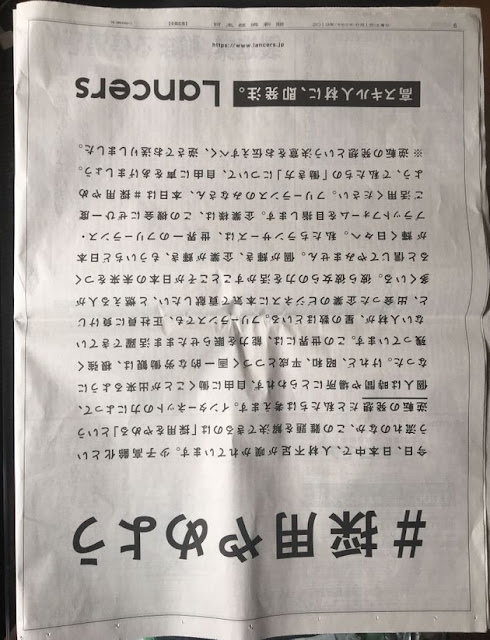 日本経済新聞
https://www.lancers.jp
#採用やめよう
今日、日本中で、人材不足が嘆かれています。少子高齢化とい
う流れのなか、この難題を解決できるのは「採用をやめる」という
逆転の発想だと私たちは考えます。インターネットの力によって、
個人は時間や場所にとらわれず、自由に働くことが出来るように
なった。けれど、昭和、平成とつづく画一的な労働観は、根強く
残っています。この世界には、能力を眠らせたまま活躍できてい
ない人材が、星の数ほどいる。フリーランスでも、正社員に負けじ
と、出会った企業のビジネスに本気で貢献したい、と燃える人が
多くいる。彼ら彼女らの力を活かすことこそが日本の未来をつく
ると信じてやみません。個が輝き、企業が輝き、もういちど日本
が輝く日々へ。私たちランサーズは、世界一のフリーランス・
プラットフォームを目指します。企業様は、この機会にぜひ一度
ご活用ください。フリーランスのみなさん、本日は#採用やめ
よう、で私たちの「働き方」について、自由に声をあげましょう。
※ 逆転の発想という決意をお伝えすべく、逆さでお送りしました。
高スキル人材に、即発注。 Lancers